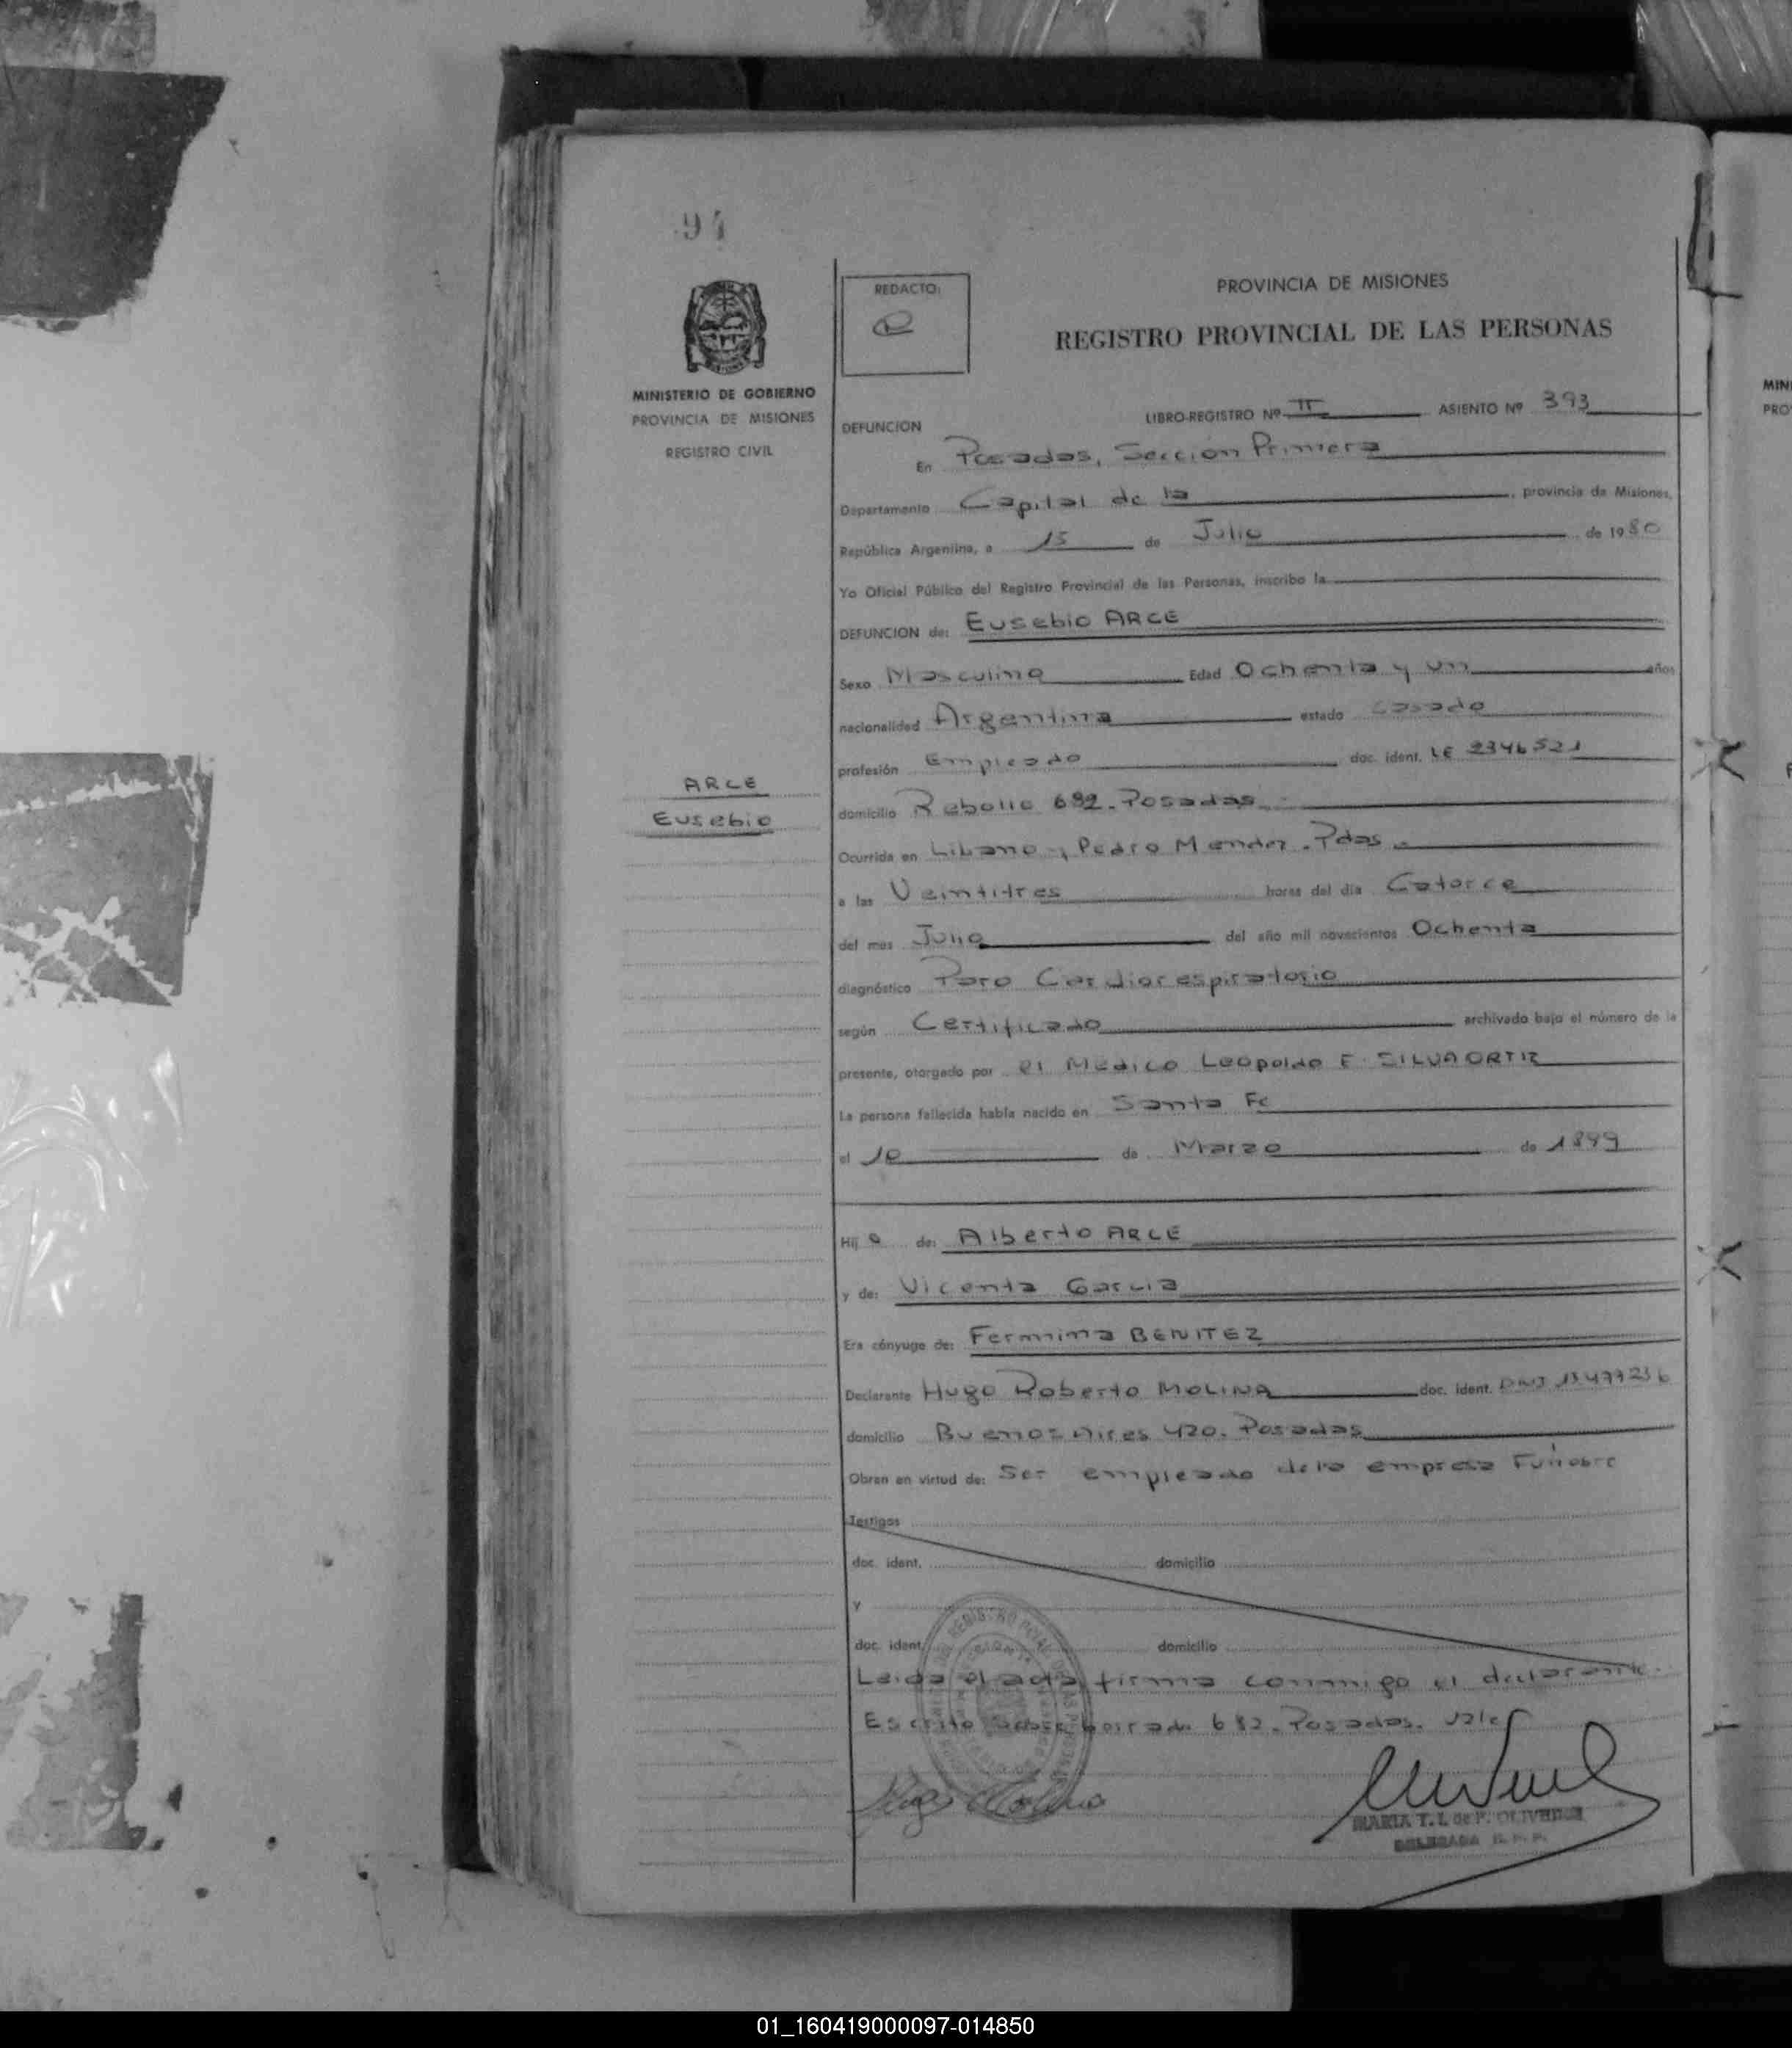 94
MINISTERIO DE GOBIERNO
PROVINCIA DE MISIONES
REGISTRO CIVIL
ARCE
Eusebio
REDACTO:
PROVINCIA DE MISIONES
REGISTRO PROVINCIAL DE LAS PERSONAS
LIBRO-REGISTRO Nº II ASIENTO Nº 393
DEFUNCION
En Posadas, Sección Primera
Departamento Capital de la , provincia de Misiones,
República Argentina, a 15 de Julio de 1980
Yo Oficial Público del Registro Provincial de las Personas, inscribo la
DEFUNCION de: Eusebio ARCE
Sexo Masculino Edad Ochenta y un años
nacionalidad Argentina estado casado
profesión Empleado doc. ident. LE 2346521
domicilio Rebollo 682. Posadas.
Ocurrida en Libano y Pedro Mendez. Pdas.
a las Veintitres horas del día Catorce
del mes Julio del año mil novecientos Ochenta
diagnóstico Paro Cardiorespiratorio
según Certificado archivado bajo el número de la
presente, otorgado por el Medico Leopoldo F. SILVA ORTIZ
La persona fallecida había nacido en Santa Fe
el 10 de Marzo de 1899
Hij o de: Alberto ARCE
y de: Vicenta Garcia
Era cónyuge de: Fermina BENITEZ
Declarante Hugo Roberto MOLINA doc. ident. DNI 13477236
domicilio Buenos Aires 420. Posadas
Obran en virtud de: Ser empleado de la empresa Funebre
Testigos
doc. ident. domicilio
y
doc. ident. domicilio
Leida el acta, firma conmigo el declarante.
Escrito sobre borrado 682. Posadas. Vale
Hugo Molina
MARIA T. I. de F. OLIVEIRA
DELEGADA R. P. P.
MINI
PRO
01_160419000097-014850